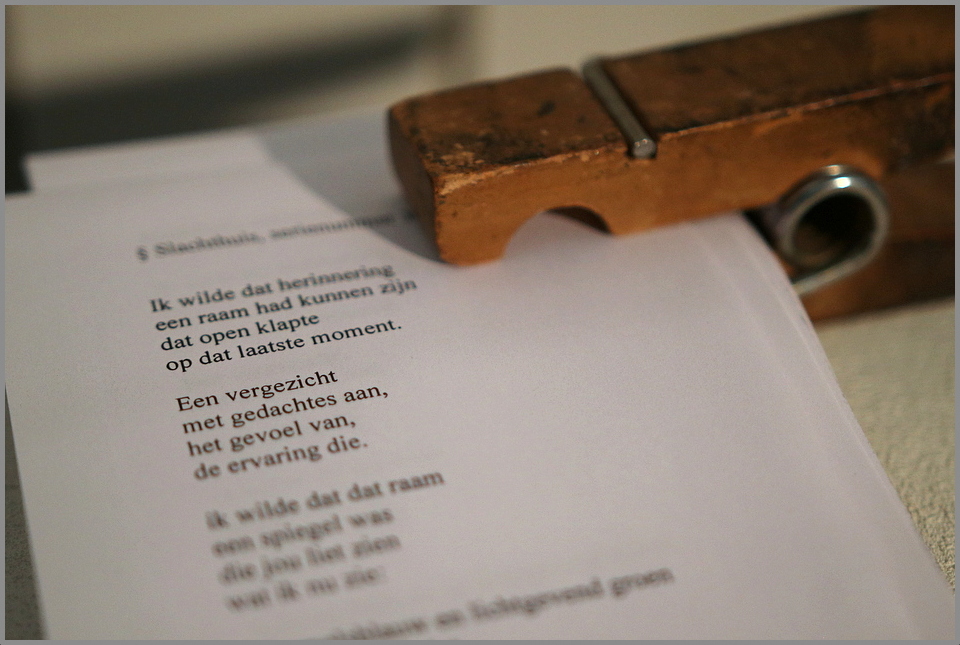 § Slachthuis,
Ik wilde dat herinnering
een raam had kunnen zijn
dat open klapte
op dat laatste moment.
Een vergezicht
met gedachtes aan,
het gevoel van,
de ervaring die.
ik wilde dat dat raam
een spiegel was
die jou liet zien
wat ik nu zie:
en lichtgevend groen